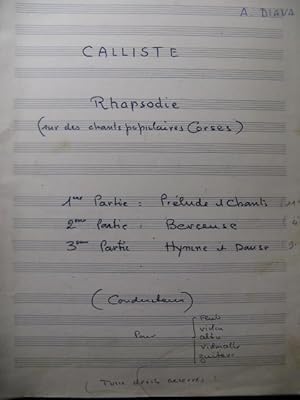 A. DIANA
CALLISTE
Rhapsodie
(sur des chants populaires Corses)
1ère Partie : Prélude et Chants
2ème Partie : Berceuse
3ème Partie Hymne et Danse
(Conducteur)
Pour
flute
violon
alto
violoncelle
guitare
(Tous droits réservés)